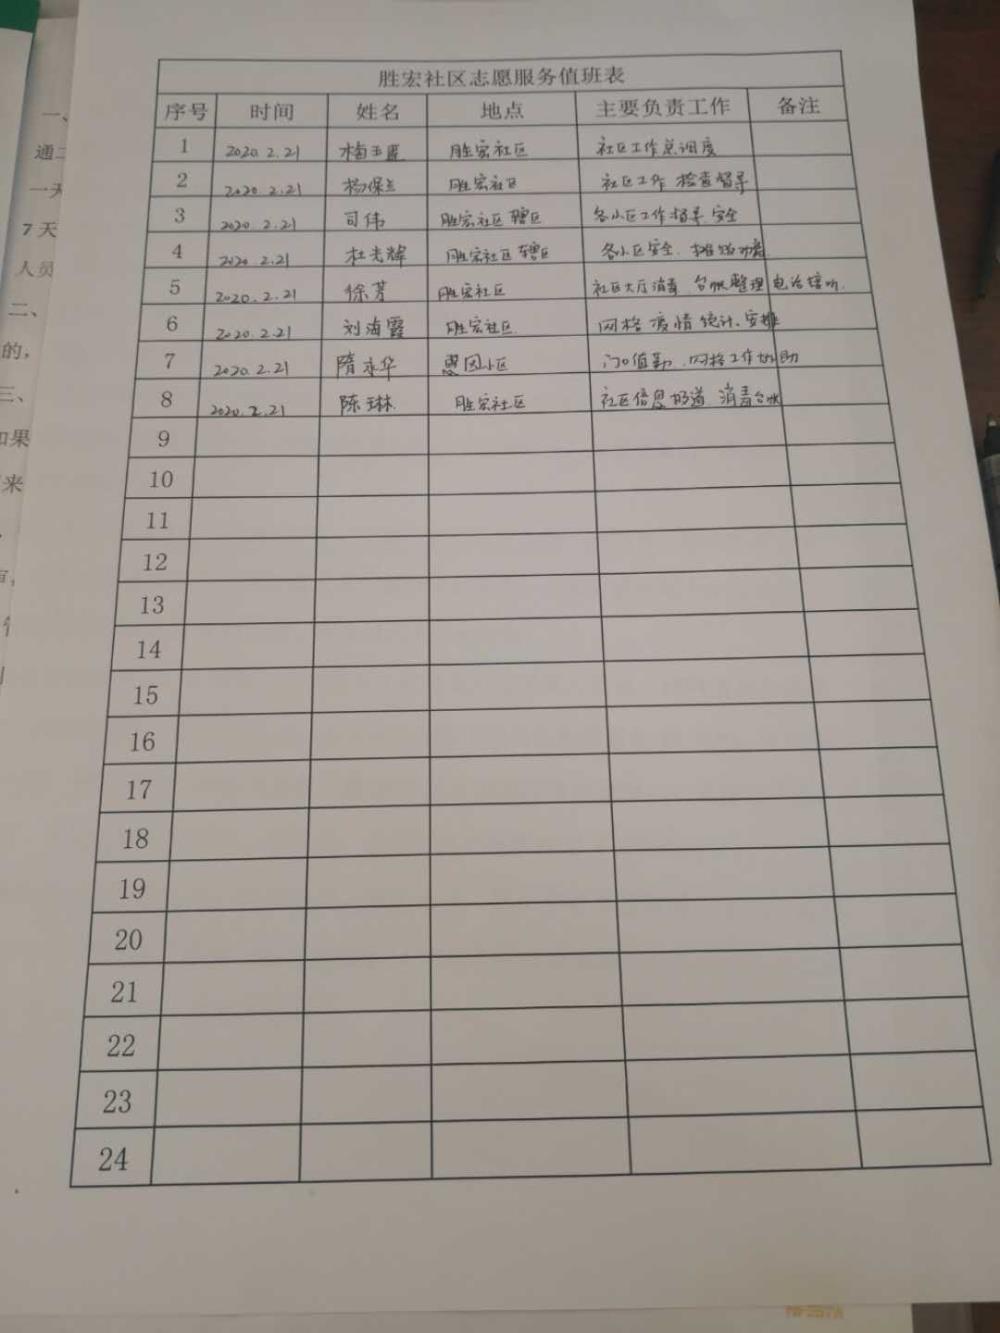 胜宏社区志愿服务值班表
序号 时间 姓名 地点 主要负责工作 备注
1 2020.2.21 胜宏社区 社区工作总调度
2 2020.2.21 杨保兰 胜宏社区 社区工作 检查督导
3 2020.2.21 司伟 胜宏社区辖区 各小区工作指导.安全
4 2020.2.21 杜光辉 胜宏社区辖区 各小区安全.
5 2020.2.21 徐芳 胜宏社区 社区大厅消毒.台账整理 电话接听.
6 2020.2.21 刘海霞 胜宏社区. 网格疫情统计.安排
7 2020.2.21 隋永华 小区 门口值勤.网格工作协助
8 2020.2.21 陈琳 胜宏社区 社区信息报道 消毒台账
9
10
11
12
13
14
15
16
17
18
19
20
21
22
23
24
一、
一天
7天
人员
二、
的,
三、
如果
来